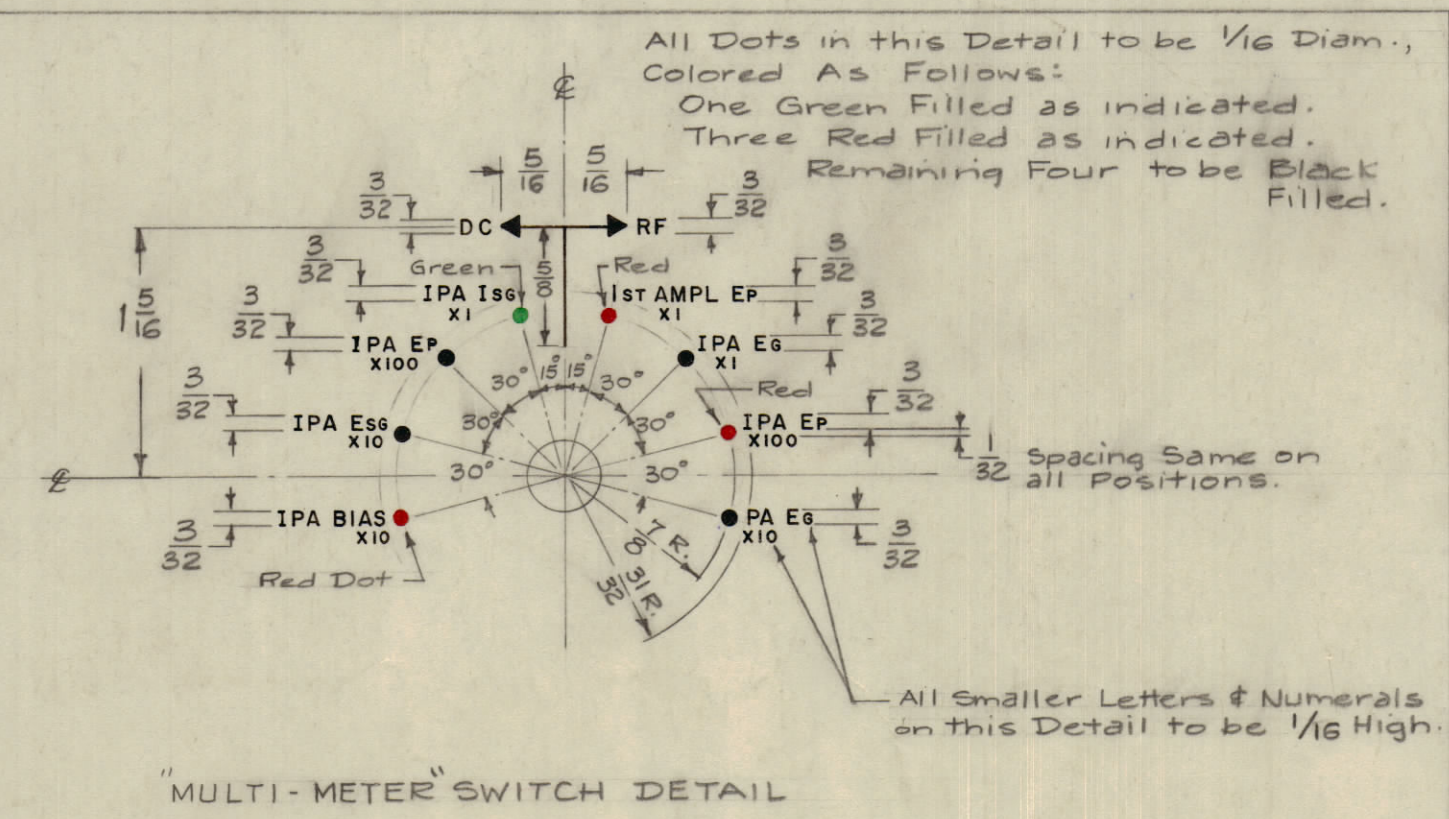 All Dots in this Detail to be 1/16 Diam.,
Colored As Follows:
One Green Filled as indicated.
Three Red Filled as indicated.
Remaining Four to be Black
Filled.
℄
5/16 5/16
3/32 DC RF 3/32
3/32 Green 5/8 Red 3/32
IPA ISG 1ST AMPL EP
X1 X1
1 5/16
3/32 IPA EP IPA EG 3/32
X100 X1
30° 15° 15° 30°
Red
3/32 IPA ESG 30° 30° IPA EP 3/32
X10 X100
1/32 Spacing Same on
all Positions.
℄ 30° 30°
3/32 IPA BIAS PA EG 3/32
X10 X10
7/8 R.
31/32 R.
Red Dot
All Smaller Letters & Numerals
on this Detail to be 1/16 High.
"MULTI-METER" SWITCH DETAIL